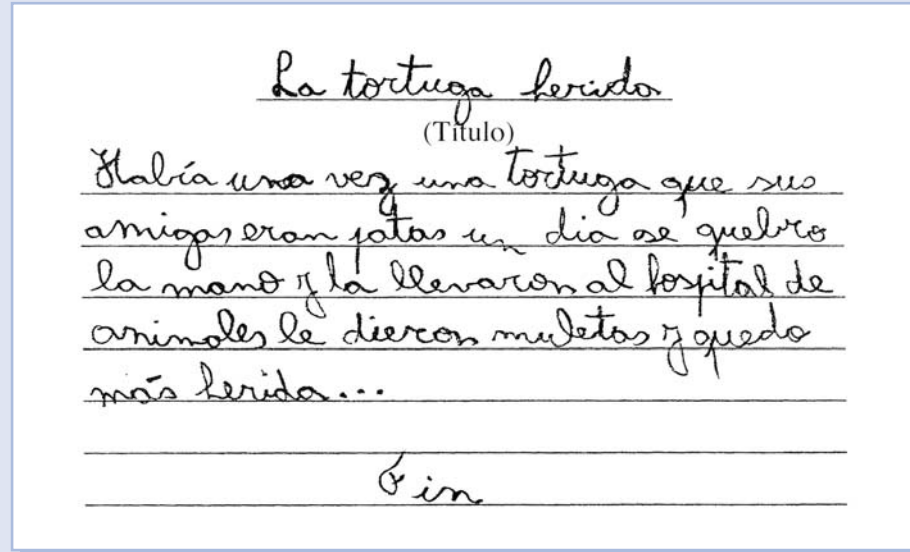 La tortuga herida
(Título)
Había una vez una tortuga que sus
amigas eran patas un dia se quebro
la mano y la llevaron al hospital de
animales le dieron muletas y quedo
más herida...
Fin